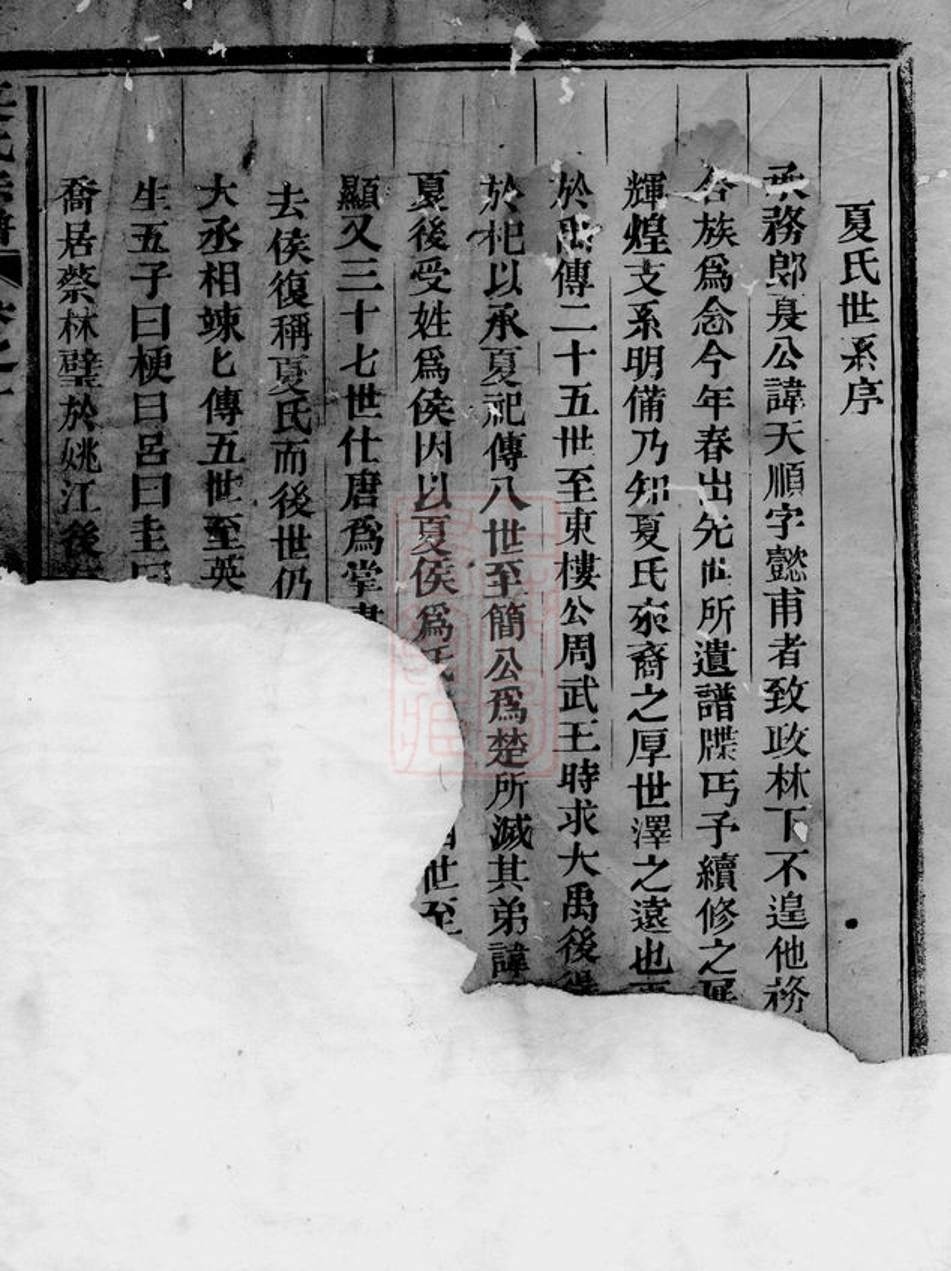 夏氏世系序
承務郎夏公諱天順字懿甫者致政林下不遑他務
各族爲念今年春出先世所遺譜牒丐予續修之展
輝煌支系明備乃知夏氏來裔之厚世澤之遠也
於禹傳二十五世至東樓公周武王時求大禹後得
於杞以承夏祀傳八世至簡公爲楚所滅其弟諱
夏後受姓爲侯因以夏侯爲氏 世至
顯又三十七世仕唐爲掌書
去侯復稱夏氏而後世仍
大丞相竦匕傳五世至英
生五子曰梗曰呂曰圭曰
喬居蔡林璧於姚江後
氏宗譜 卷之